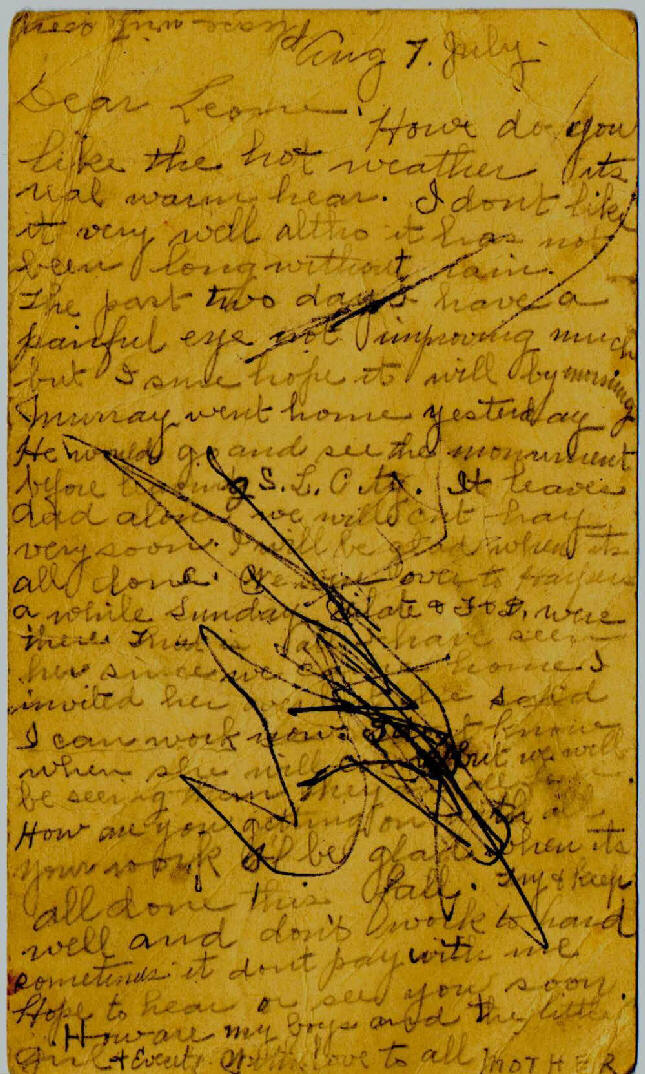 Please write soon
Aug 7. July
Dear Leone
Howe do you
like the hot weather its
real warm hear. I dont like
it very well altho it has not
been long without rain.
The past two days I have a
painful eye not improving much
but I sure hope it will by morning
Murray went home yesterday
He would go and see the monument
before leaving S.L. City. It leaves
dad alone we will cut hay
very soon I will be glad when its
all done. We over to
a while Sunday & I & D. were
there have seen
her since we home I
invited her said
I can work now. I dont know
when she will but we will
be seeing
How are you getting on with all
your work I'l be glad when its
all done this fall. Try & keep
well and don't work to hard
sometimes it dont pay with me
Hope to hear or see you soon.
How are my boys and the little
girl & love to all MOTHER